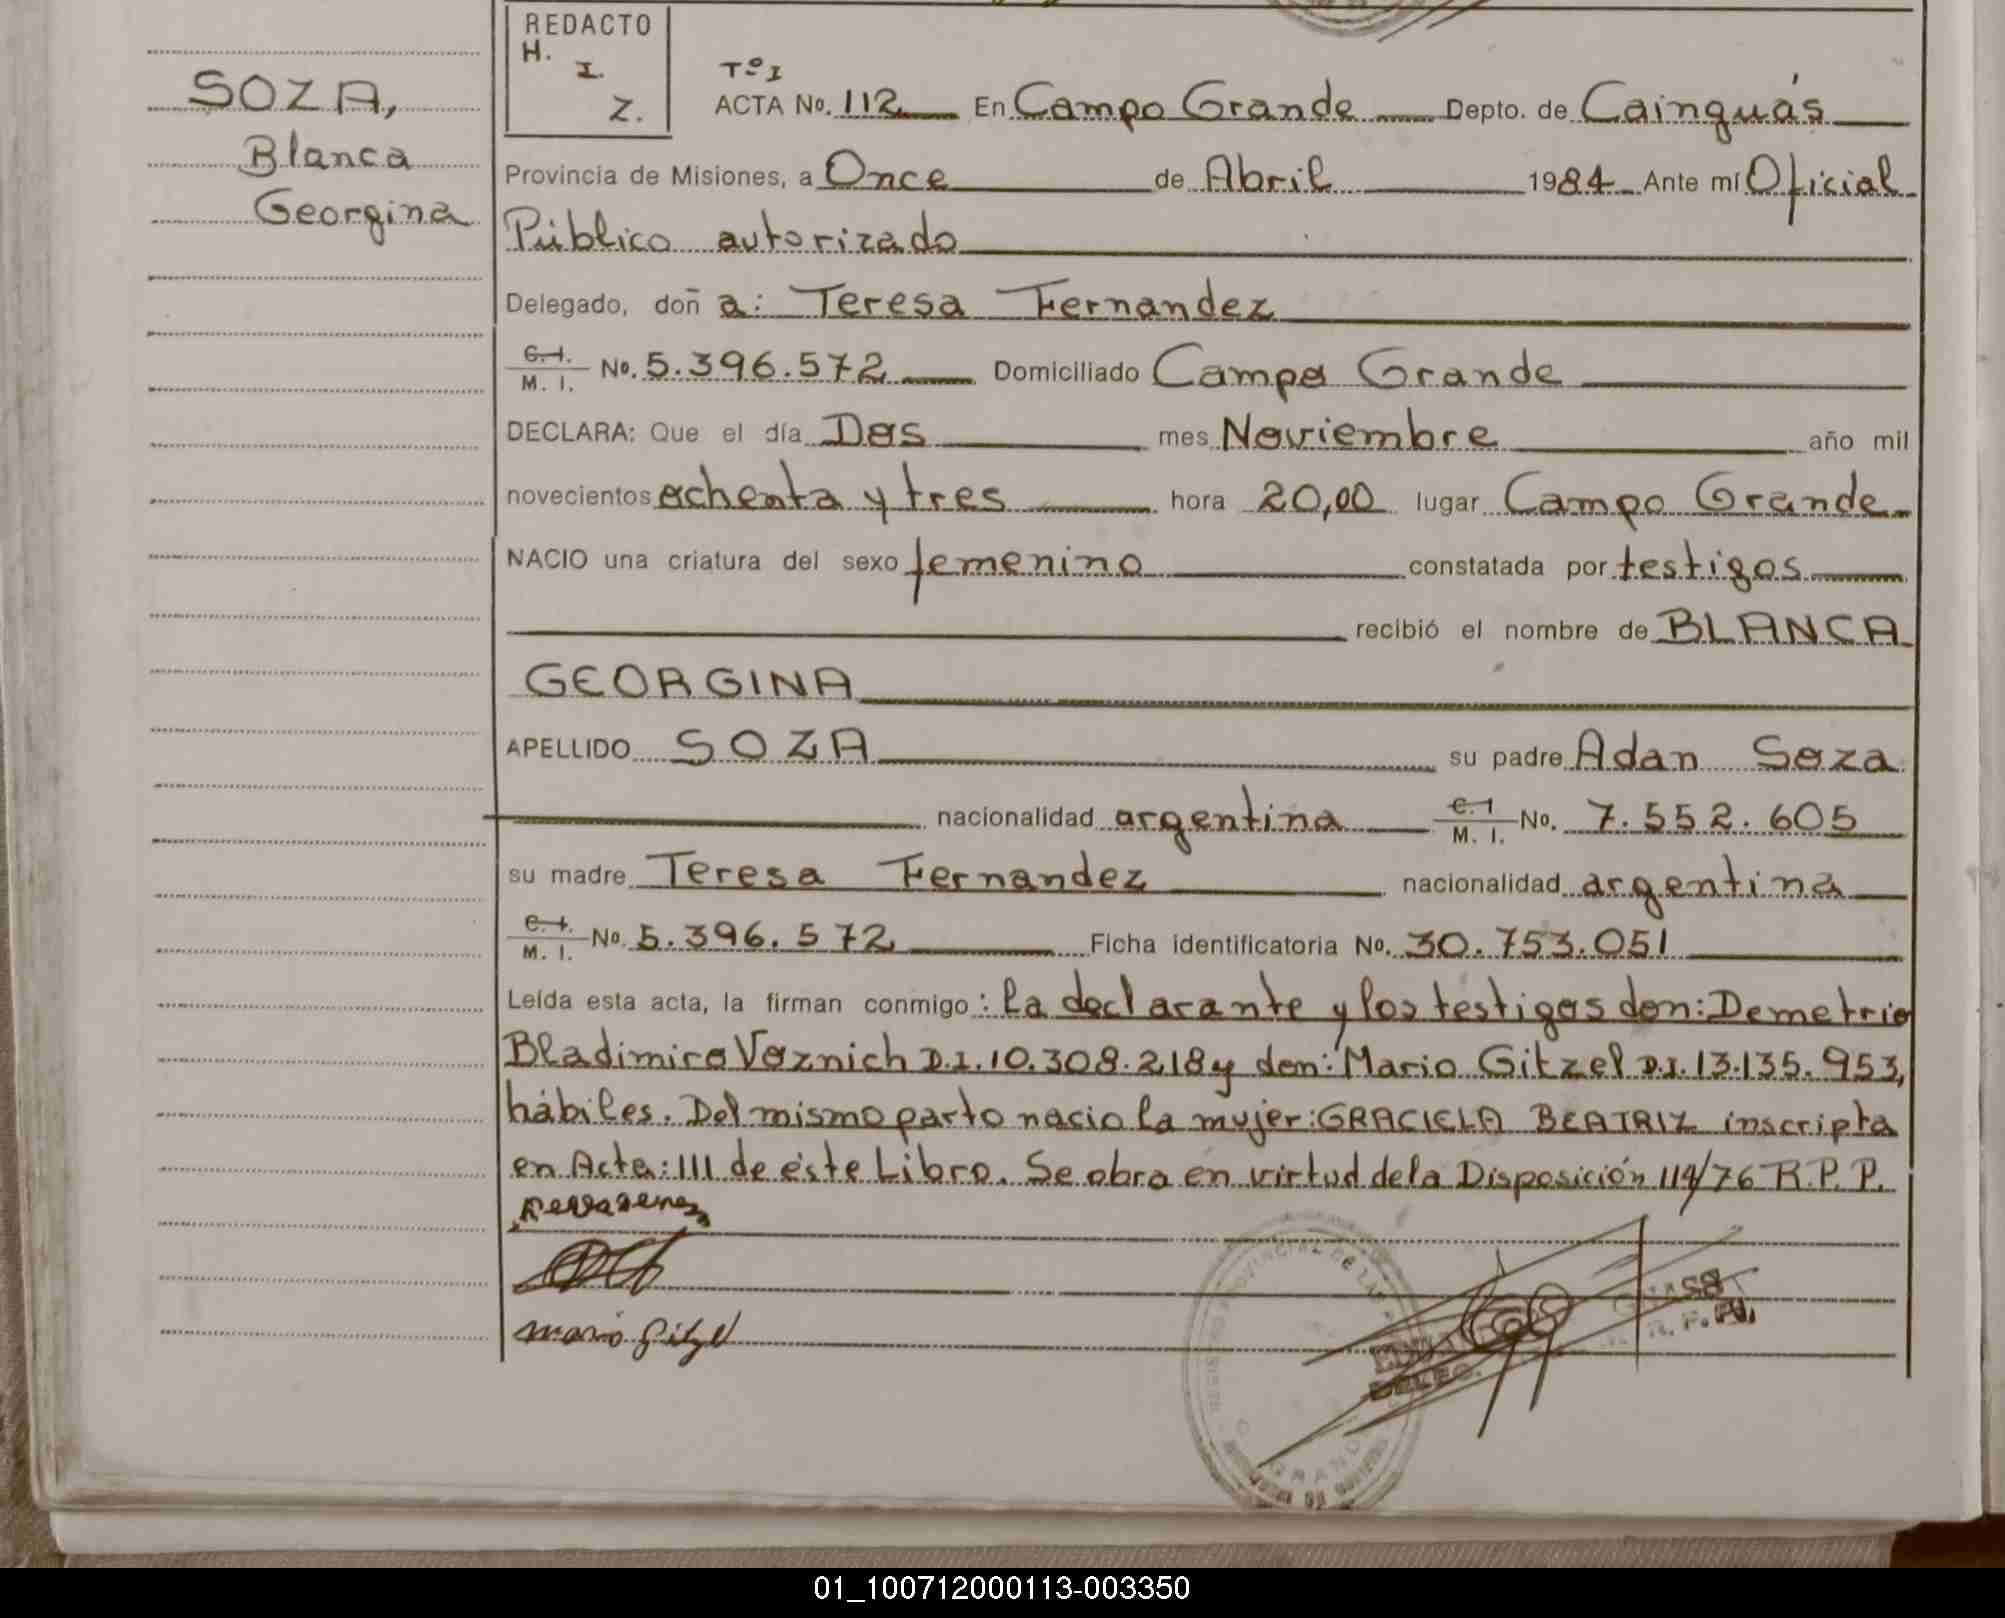 REDACTO
H.
I.
Z.
SOZA,
Blanca
Georgina
Tº I
ACTA No. 112 En Campo Grande Depto. de Cainguás
Provincia de Misiones, a Once de Abril 1984 Ante mí Oficial
Público autorizado
Delegado, doñ a: Teresa Fernandez
C.I. / M. I. No. 5.396.572 Domiciliado Campo Grande
DECLARA: Que el día Dos mes Noviembre año mil
novecientos ochenta y tres hora 20,00 lugar Campo Grande
NACIO una criatura del sexo femenino constatada por testigos
recibió el nombre de BLANCA
GEORGINA
APELLIDO SOZA su padre Adan Soza
nacionalidad argentina C.I / M. I. No. 7.552.605
su madre Teresa Fernandez nacionalidad argentina
C.I. / M. I. No. 5.396.572 Ficha identificatoria No. 30.753.051
Leída esta acta, la firman conmigo: la declarante y los testigos don: Demetrio
Bladimiro Voznich D.I. 10.308.218 y don: Mario Gitzel D.I. 13.135.953,
hábiles. Del mismo parto nacio la mujer: GRACIELA BEATRIZ inscripta
en Acta: 111 de éste Libro. Se obra en virtud de la Disposición 114/76 R.P.P.
Mario Gitzel
DELEG. R. P. P.
GRANDE
01_100712000113-003350